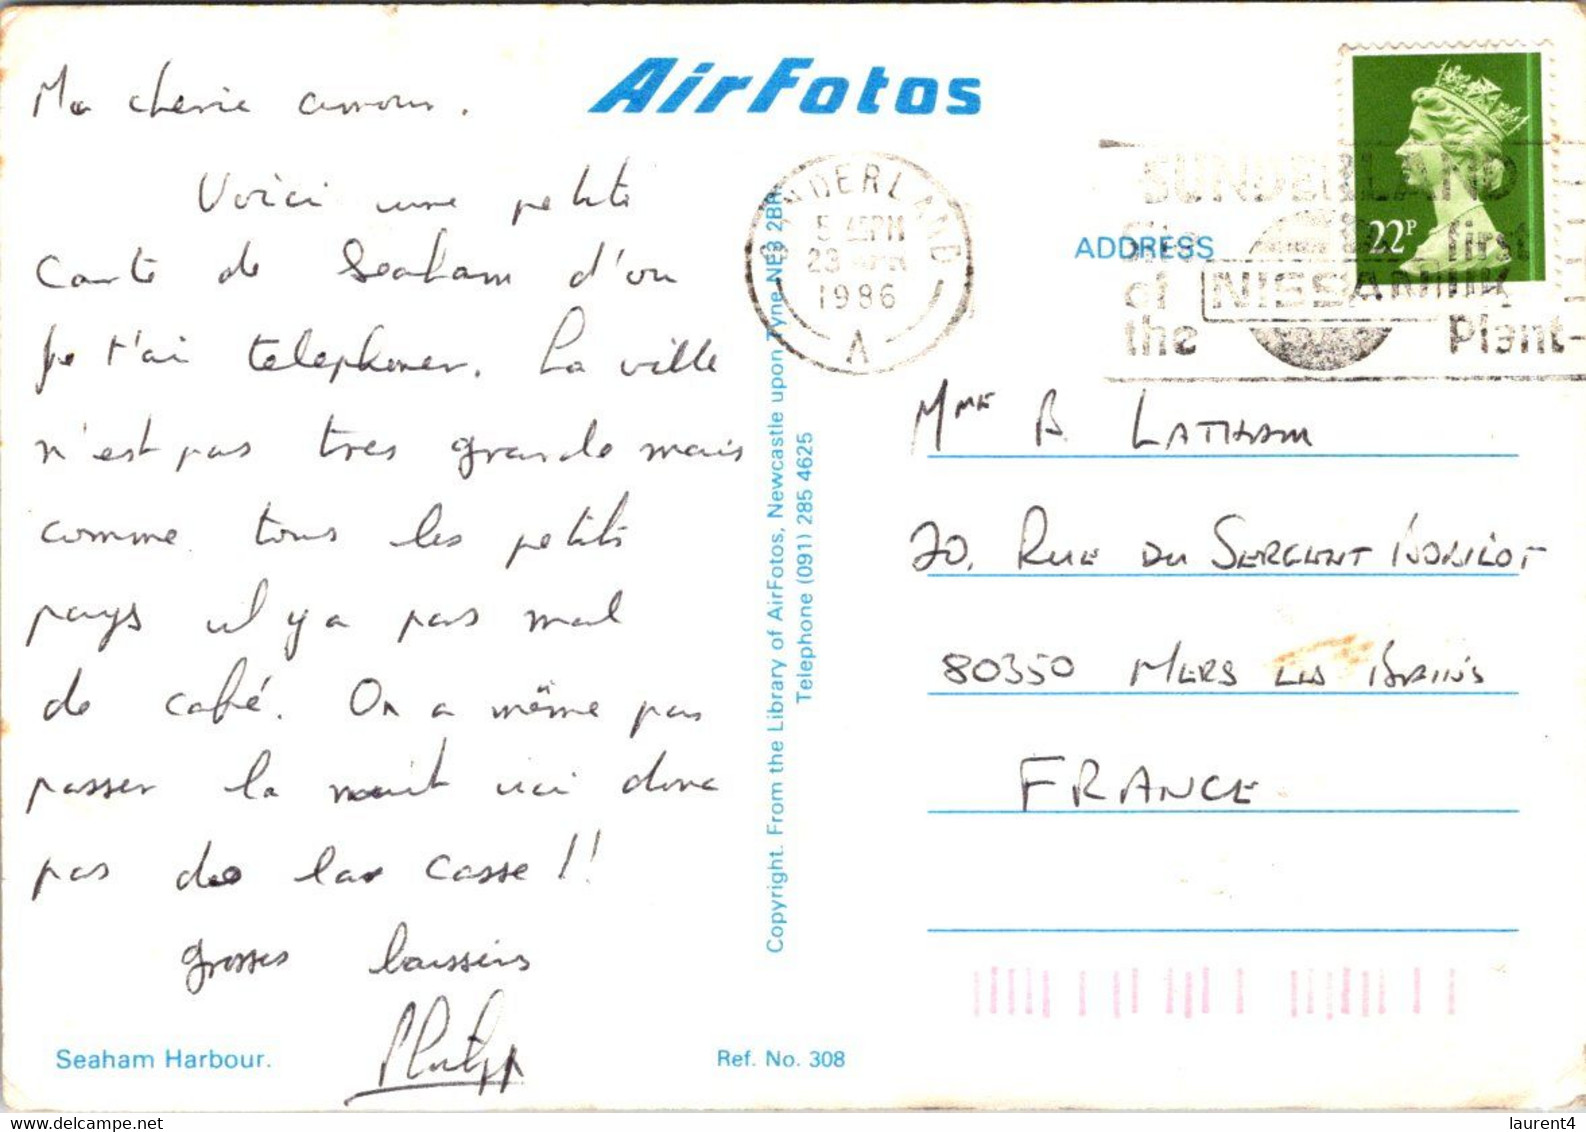 AirFotos
Ma cherie amour.
Voici une petite
Carte de Seaham d'ou
je t'ai telephoner. La ville
n'est pas tres grande mais
comme tous les petits
pays il y a pas mal
de café. On a même pas
passer la nuit ici donc
pas de la casse!!
grosses baissers
Philipp
Seaham Harbour.
Ref. No. 308
Copyright. From the Library of AirFotos, Newcastle upon Tyne NE3 2BR.
Telephone (091) 285 4625
SUNDERLAND
5 45PM
1986
A
SUNDERLAND
first
of NISSAN
the Plant-
22P
ADDRESS
Mme A. LATHAM
20, RUE DU SERGENT
80350 MERS LES BAINS
FRANCE
laurent4